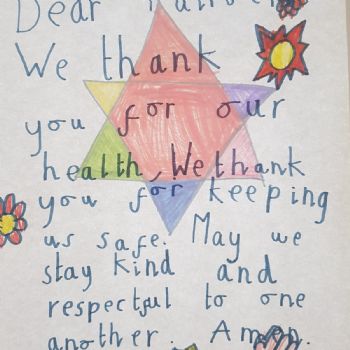 Dear
We thank
you for our
health, We thank
you for keeping
us safe. May we
stay kind and
respectful to one
another. Amen.